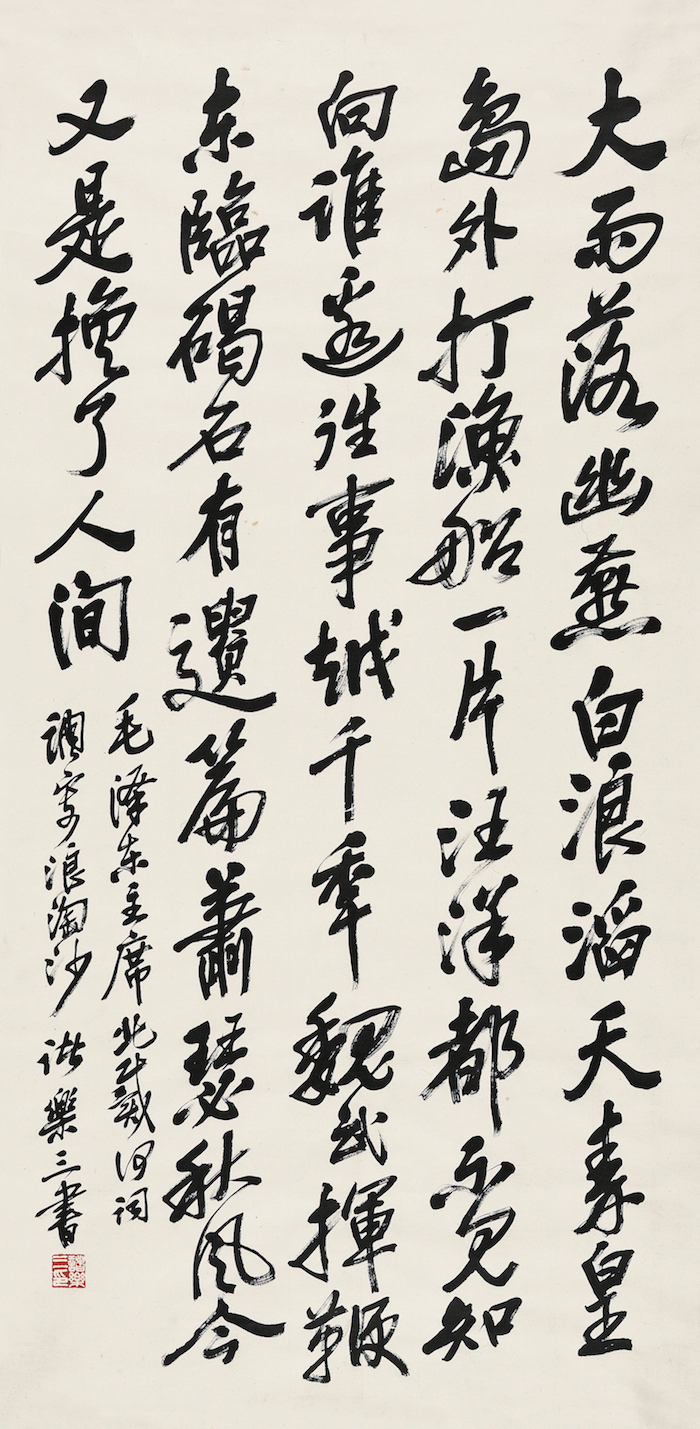 大雨落幽燕白浪滔天秦皇
島外打漁船一片汪洋都不見知
向誰邊往事越千年魏武揮鞭
东臨碣石有遺篇蕭瑟秋風今
又是換了人间
毛泽东主席北戴河詞
調寄浪淘沙 诸樂三書